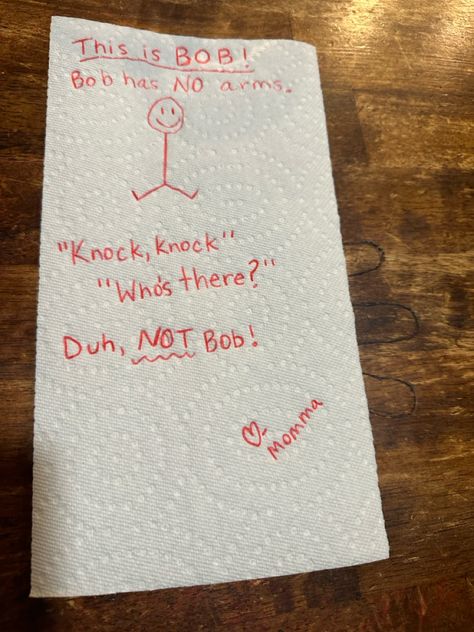 This is BOB!
Bob has NO arms.
"Knock, knock"
"Who's there?"
Duh, NOT Bob!
♡- Momma